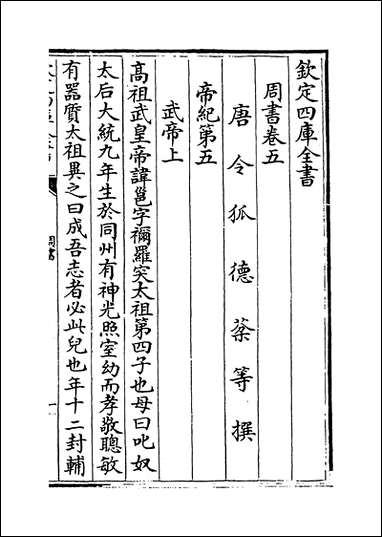 欽定四庫全書
周書卷五
唐令狐德棻等撰
帝紀第五
武帝上
高祖武皇帝諱邕字禰羅突太祖第四子也母曰叱奴
太后大統九年生於同州有神光照室幼而孝敬聰敏
有器質太祖異之曰成吾志者必此兒也年十二封輔
周書